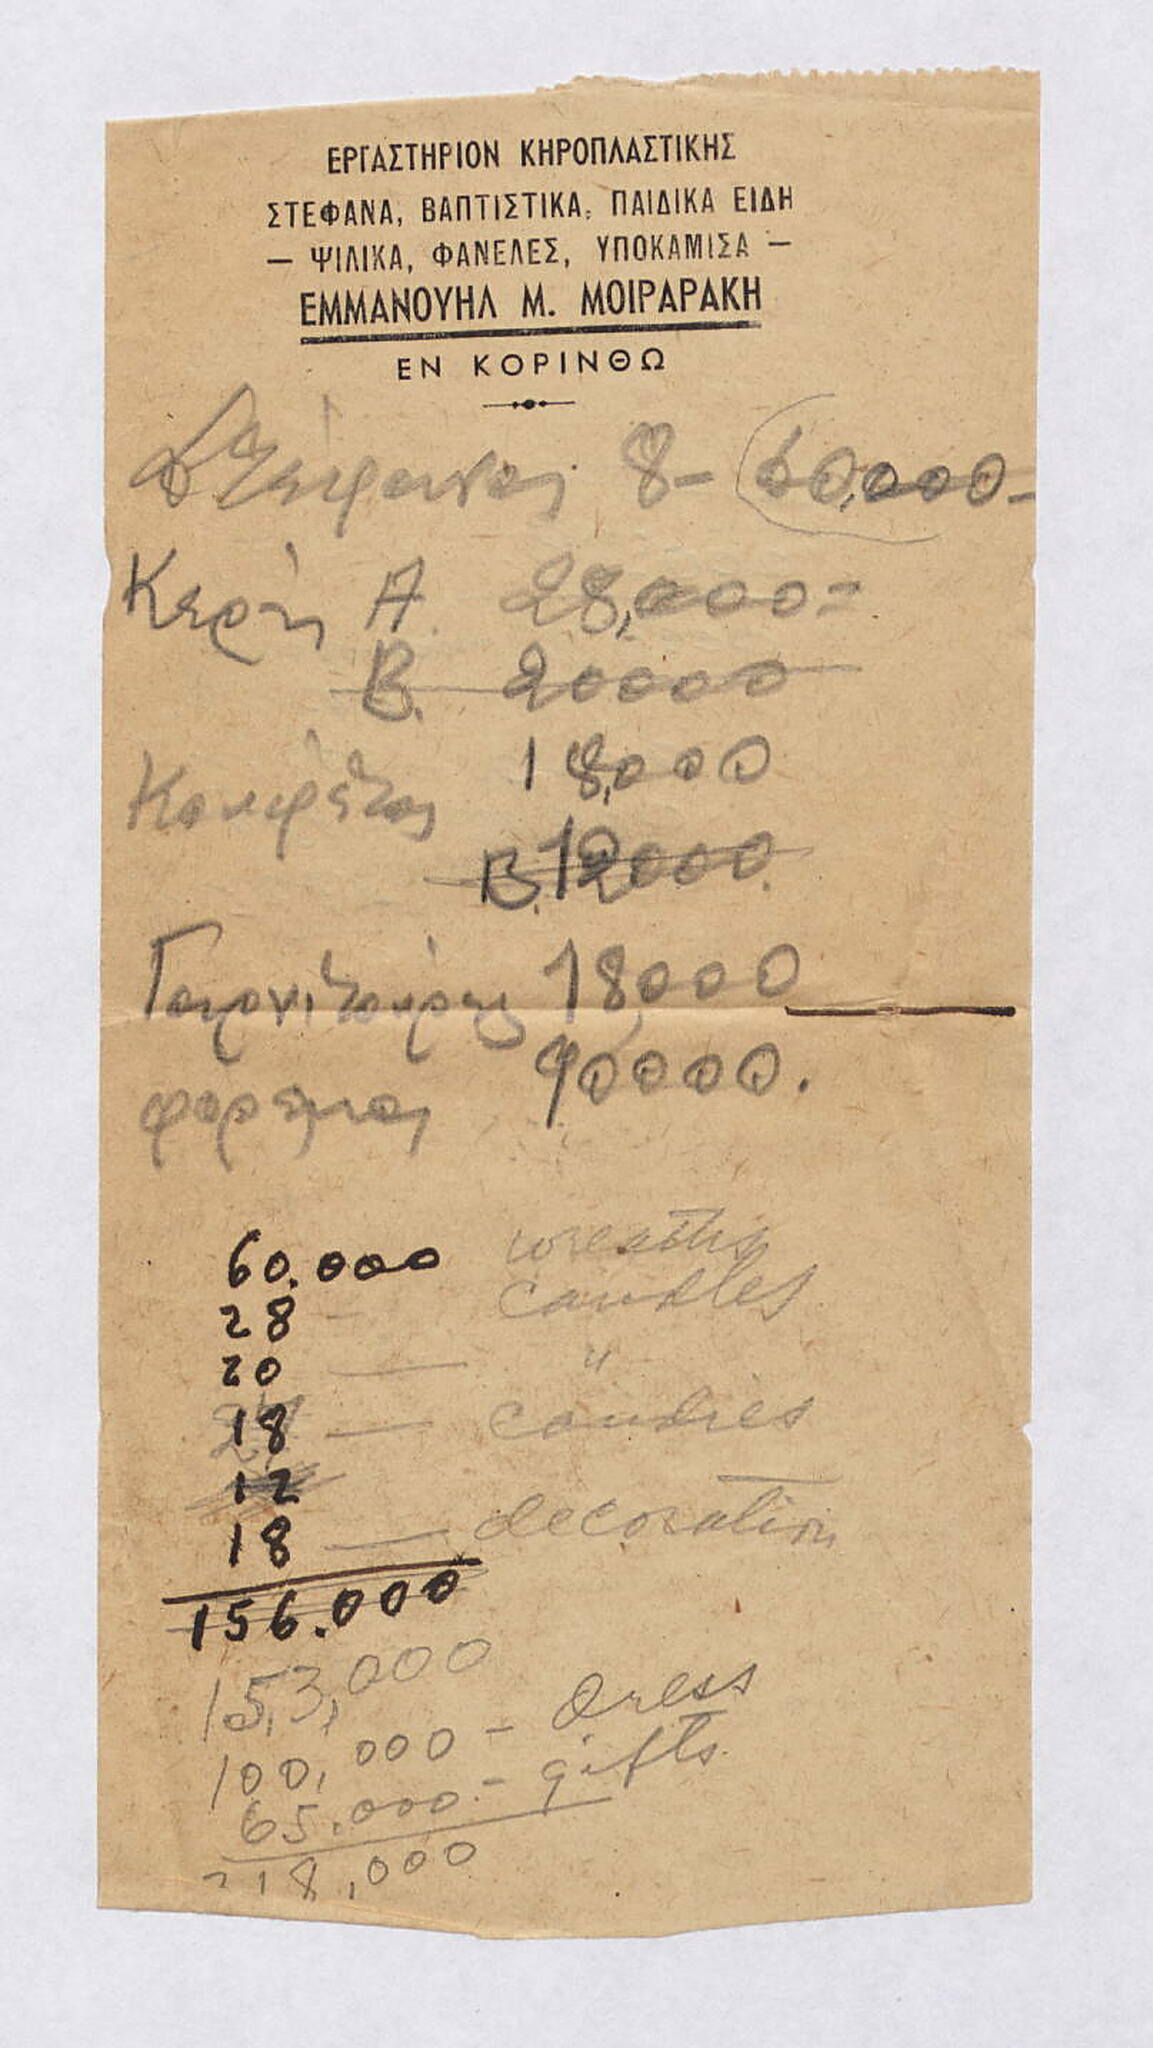 ΕΡΓΑΣΤΗΡΙΟΝ ΚΗΡΟΠΛΑΣΤΙΚΗΣ
ΣΤΕΦΑΝΑ, ΒΑΠΤΙΣΤΙΚΑ, ΠΑΙΔΙΚΑ ΕΙΔΗ
— ΨΙΛΙΚΑ, ΦΑΝΕΛΕΣ, ΥΠΟΚΑΜΙΣΑ —
ΕΜΜΑΝΟΥΗΛ Μ. ΜΟΙΡΑΡΑΚΗ
ΕΝ ΚΟΡΙΝΘΩ
Στέφανα 8- 60,000-
Κερή Α. 28,000-
Β. 20000
Κουφέτα 18,000
Β. 12000.
Γαρνιτούρες 18000
φορεμα 90000.
60.000 wreaths
28 - candles
20 — "
18 — candies
12
18 — decoration
156.000
153,000
100,000 - Dress
65.000 - gifts
218,000